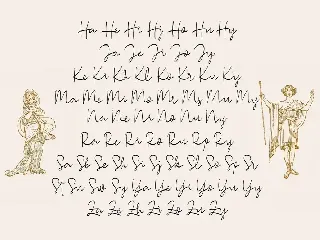 Ha He Hi Hj Ho Hu Hy
Ja Je Ji Jo Jy
Ke Ki Kk Kl Ko Kr Ku Ky
Ma Me Mi Mo Mr Ms Mu My
Na Ne Ni No Nu Ny
Ra Re Ri Ro Ru Ry
Sa Se Sh Si Sj Sk Sl So Sr
St Su Sw Sy Ya Ye Yi Yo Yu Yy
Za Ze Zh Zi Zo Zu Zy